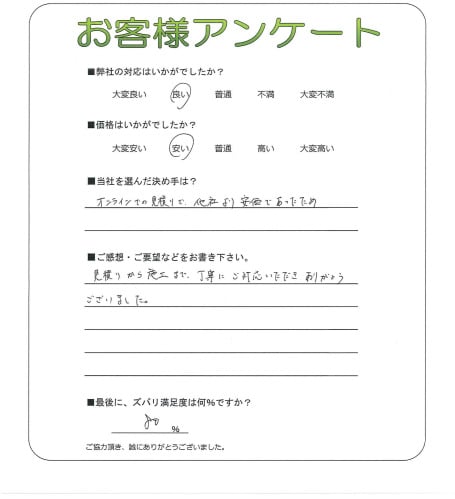 お客様アンケート
■弊社の対応はいかがでしたか？
大変良い 良い 普通 不満 大変不満
■価格はいかがでしたか？
大変安い 安い 普通 高い 大変高い
■当社を選んだ決め手は？
オンラインでの見積りで、他社より安価であったため
■ご感想・ご要望などをお書き下さい。
見積りから施工まで、丁寧にご対応いただきありがとう
ございました。
■最後に、ズバリ満足度は何％ですか？
80 ％
ご協力頂き、誠にありがとうございました。